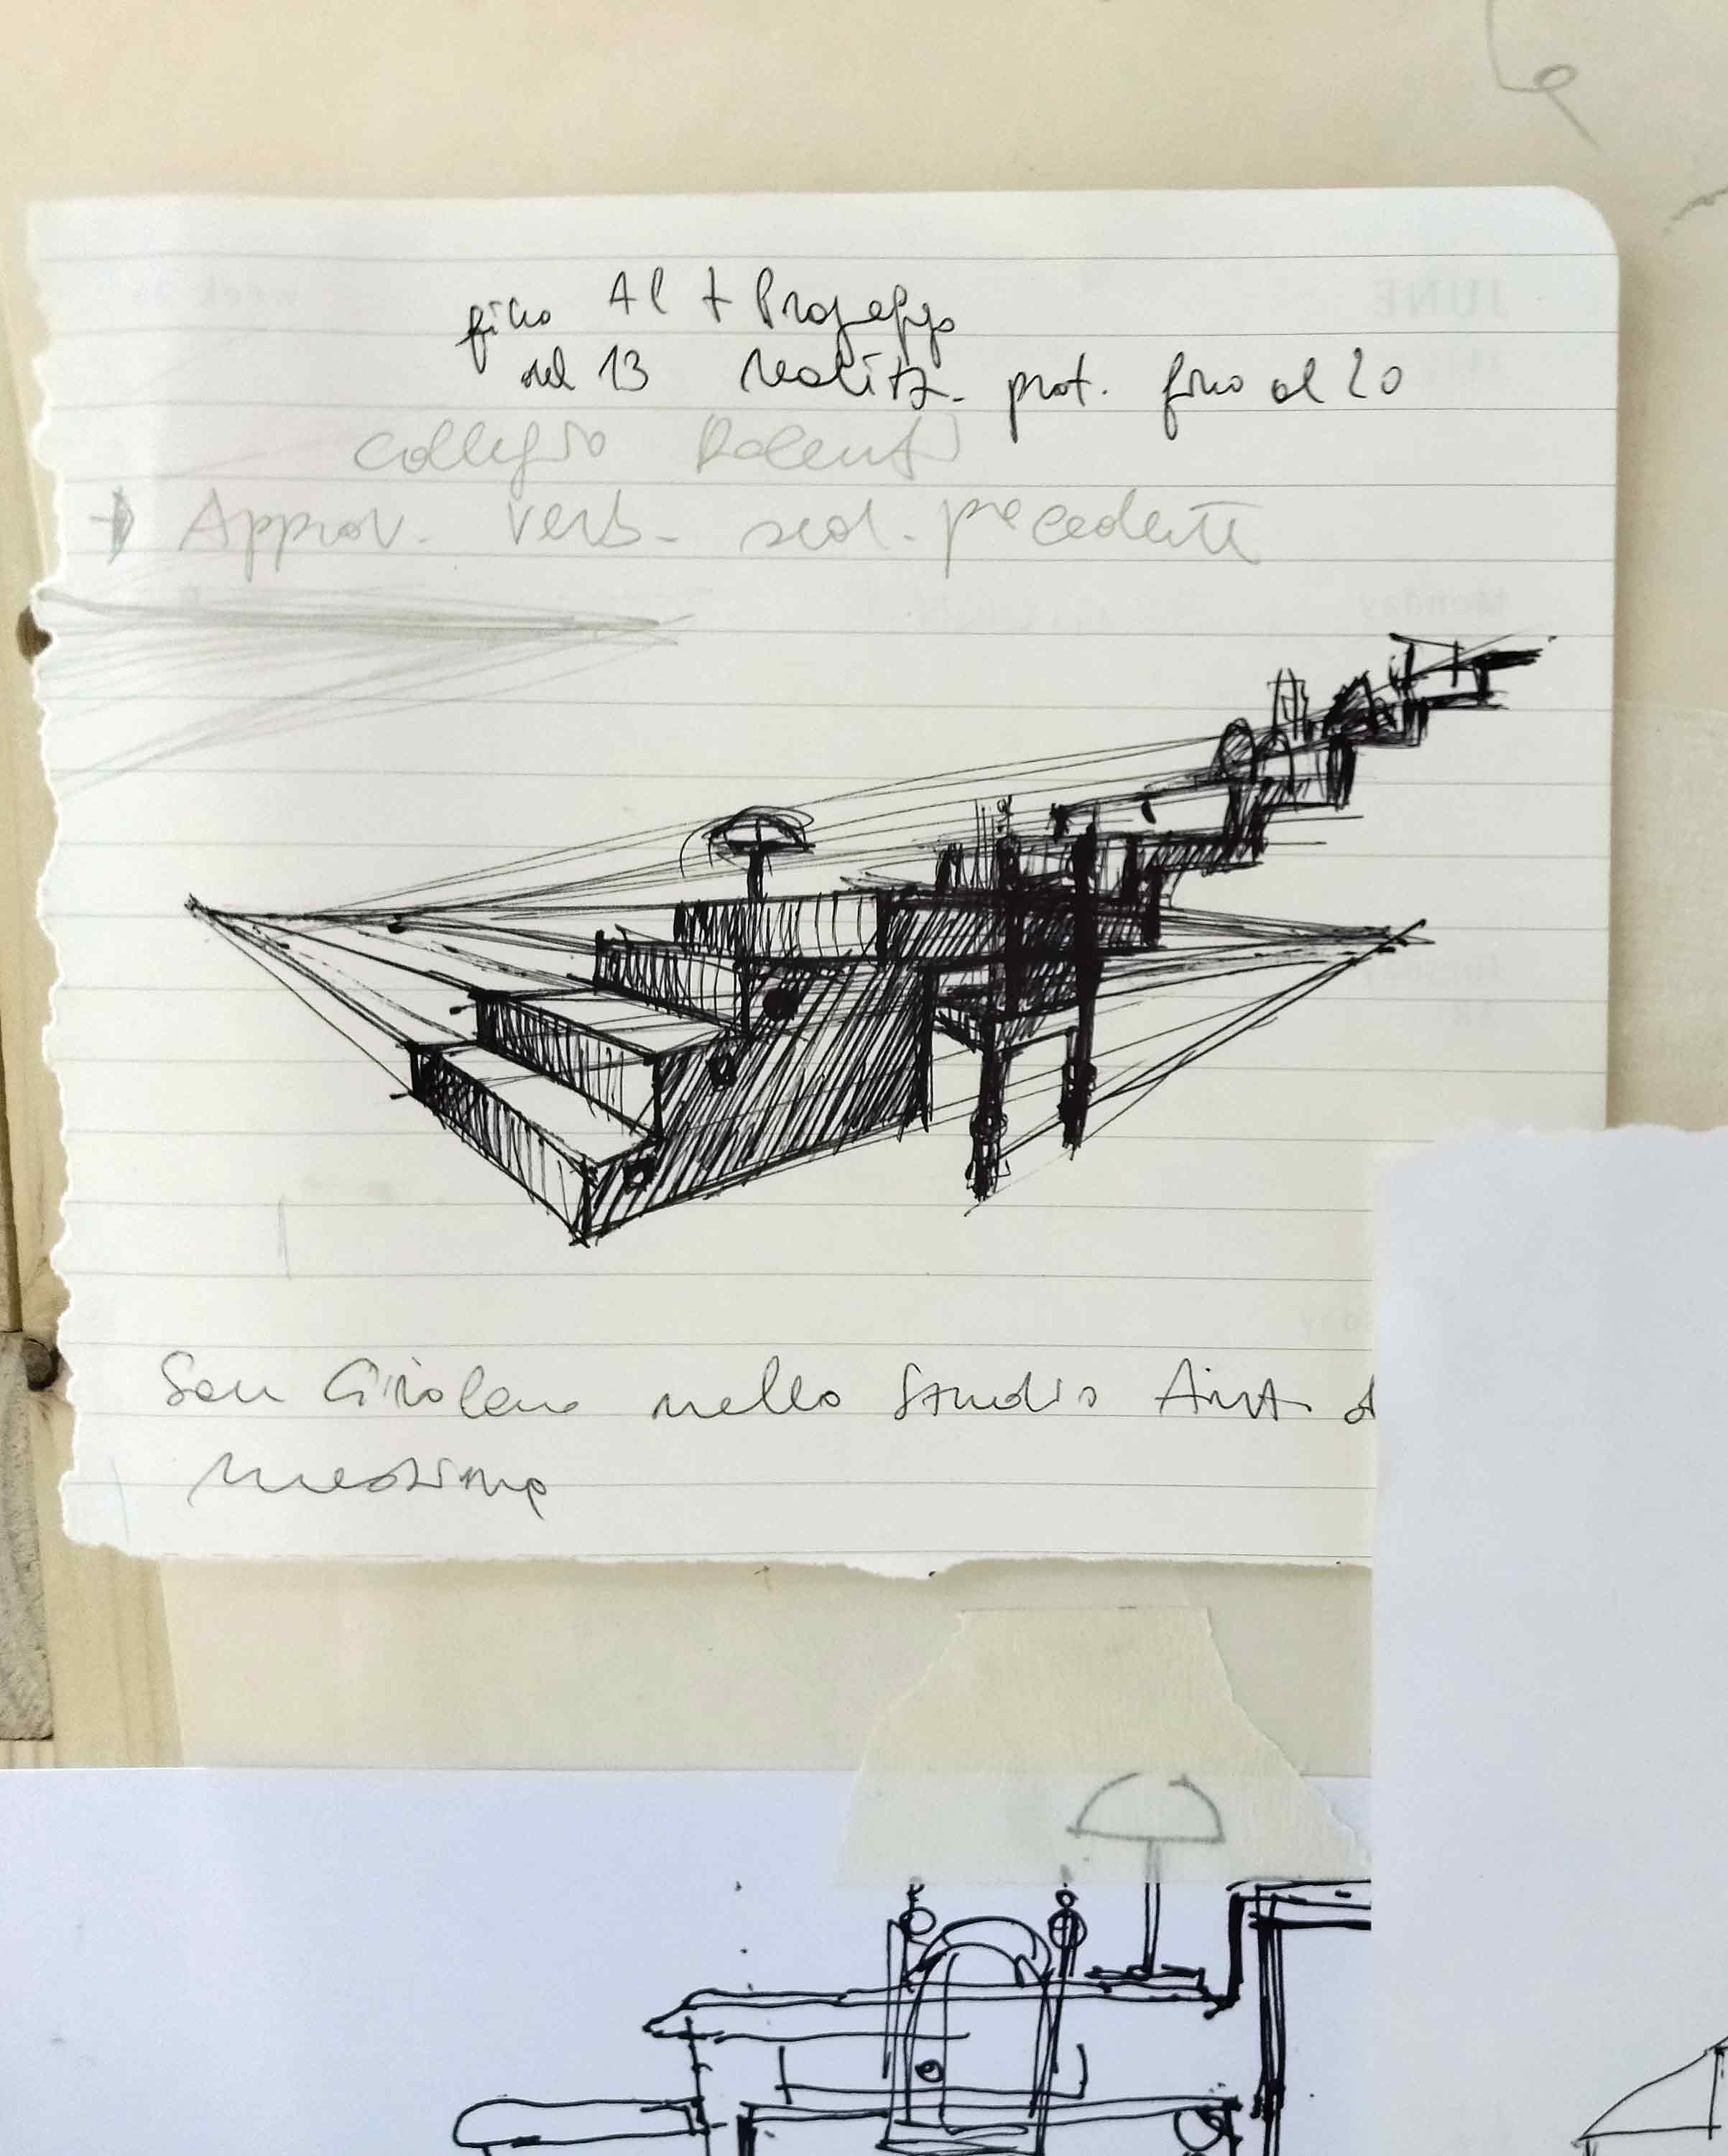 fino Al + Progetto
nel 13 realizz. prot. fino al 20
Collegio Docenti
→ Approv. verb. sed. precedente
San Girolamo nello Studio Ant. d
Messina
JUNE
week
Monday